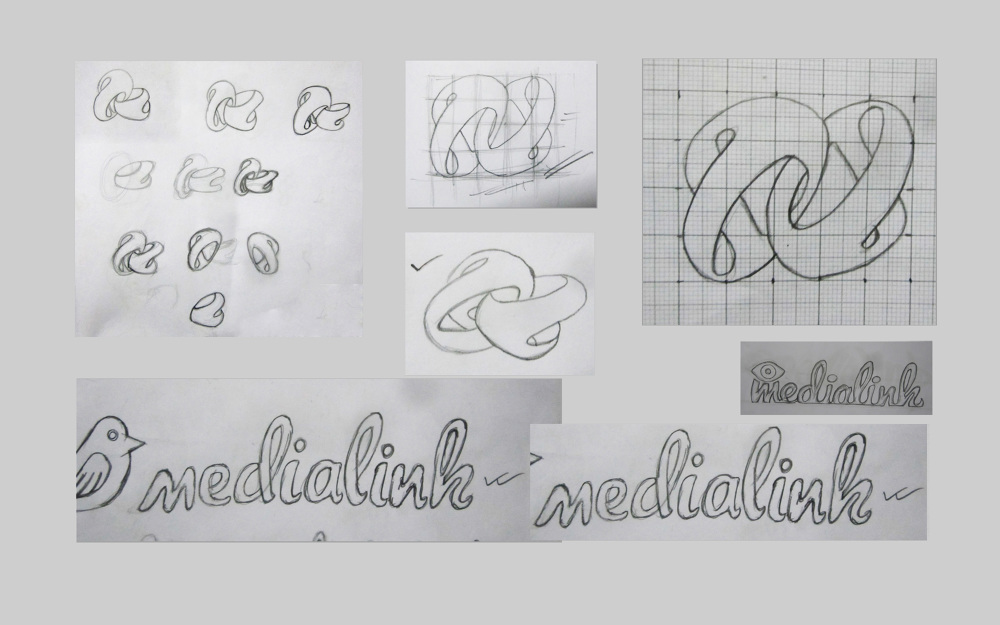 medialink
medialink
medialink